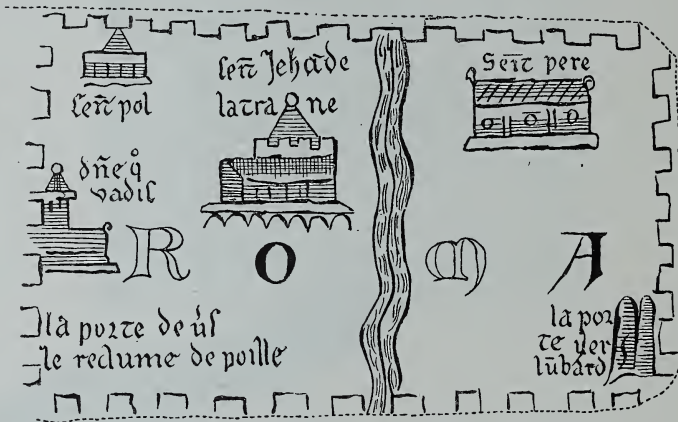 señt pol
señt Jehāde
latrane
Seīt pere
dn̄e qͦ
vadis
R O M A
la porte de u's
le redume de poille
la por
te uer
lūbard